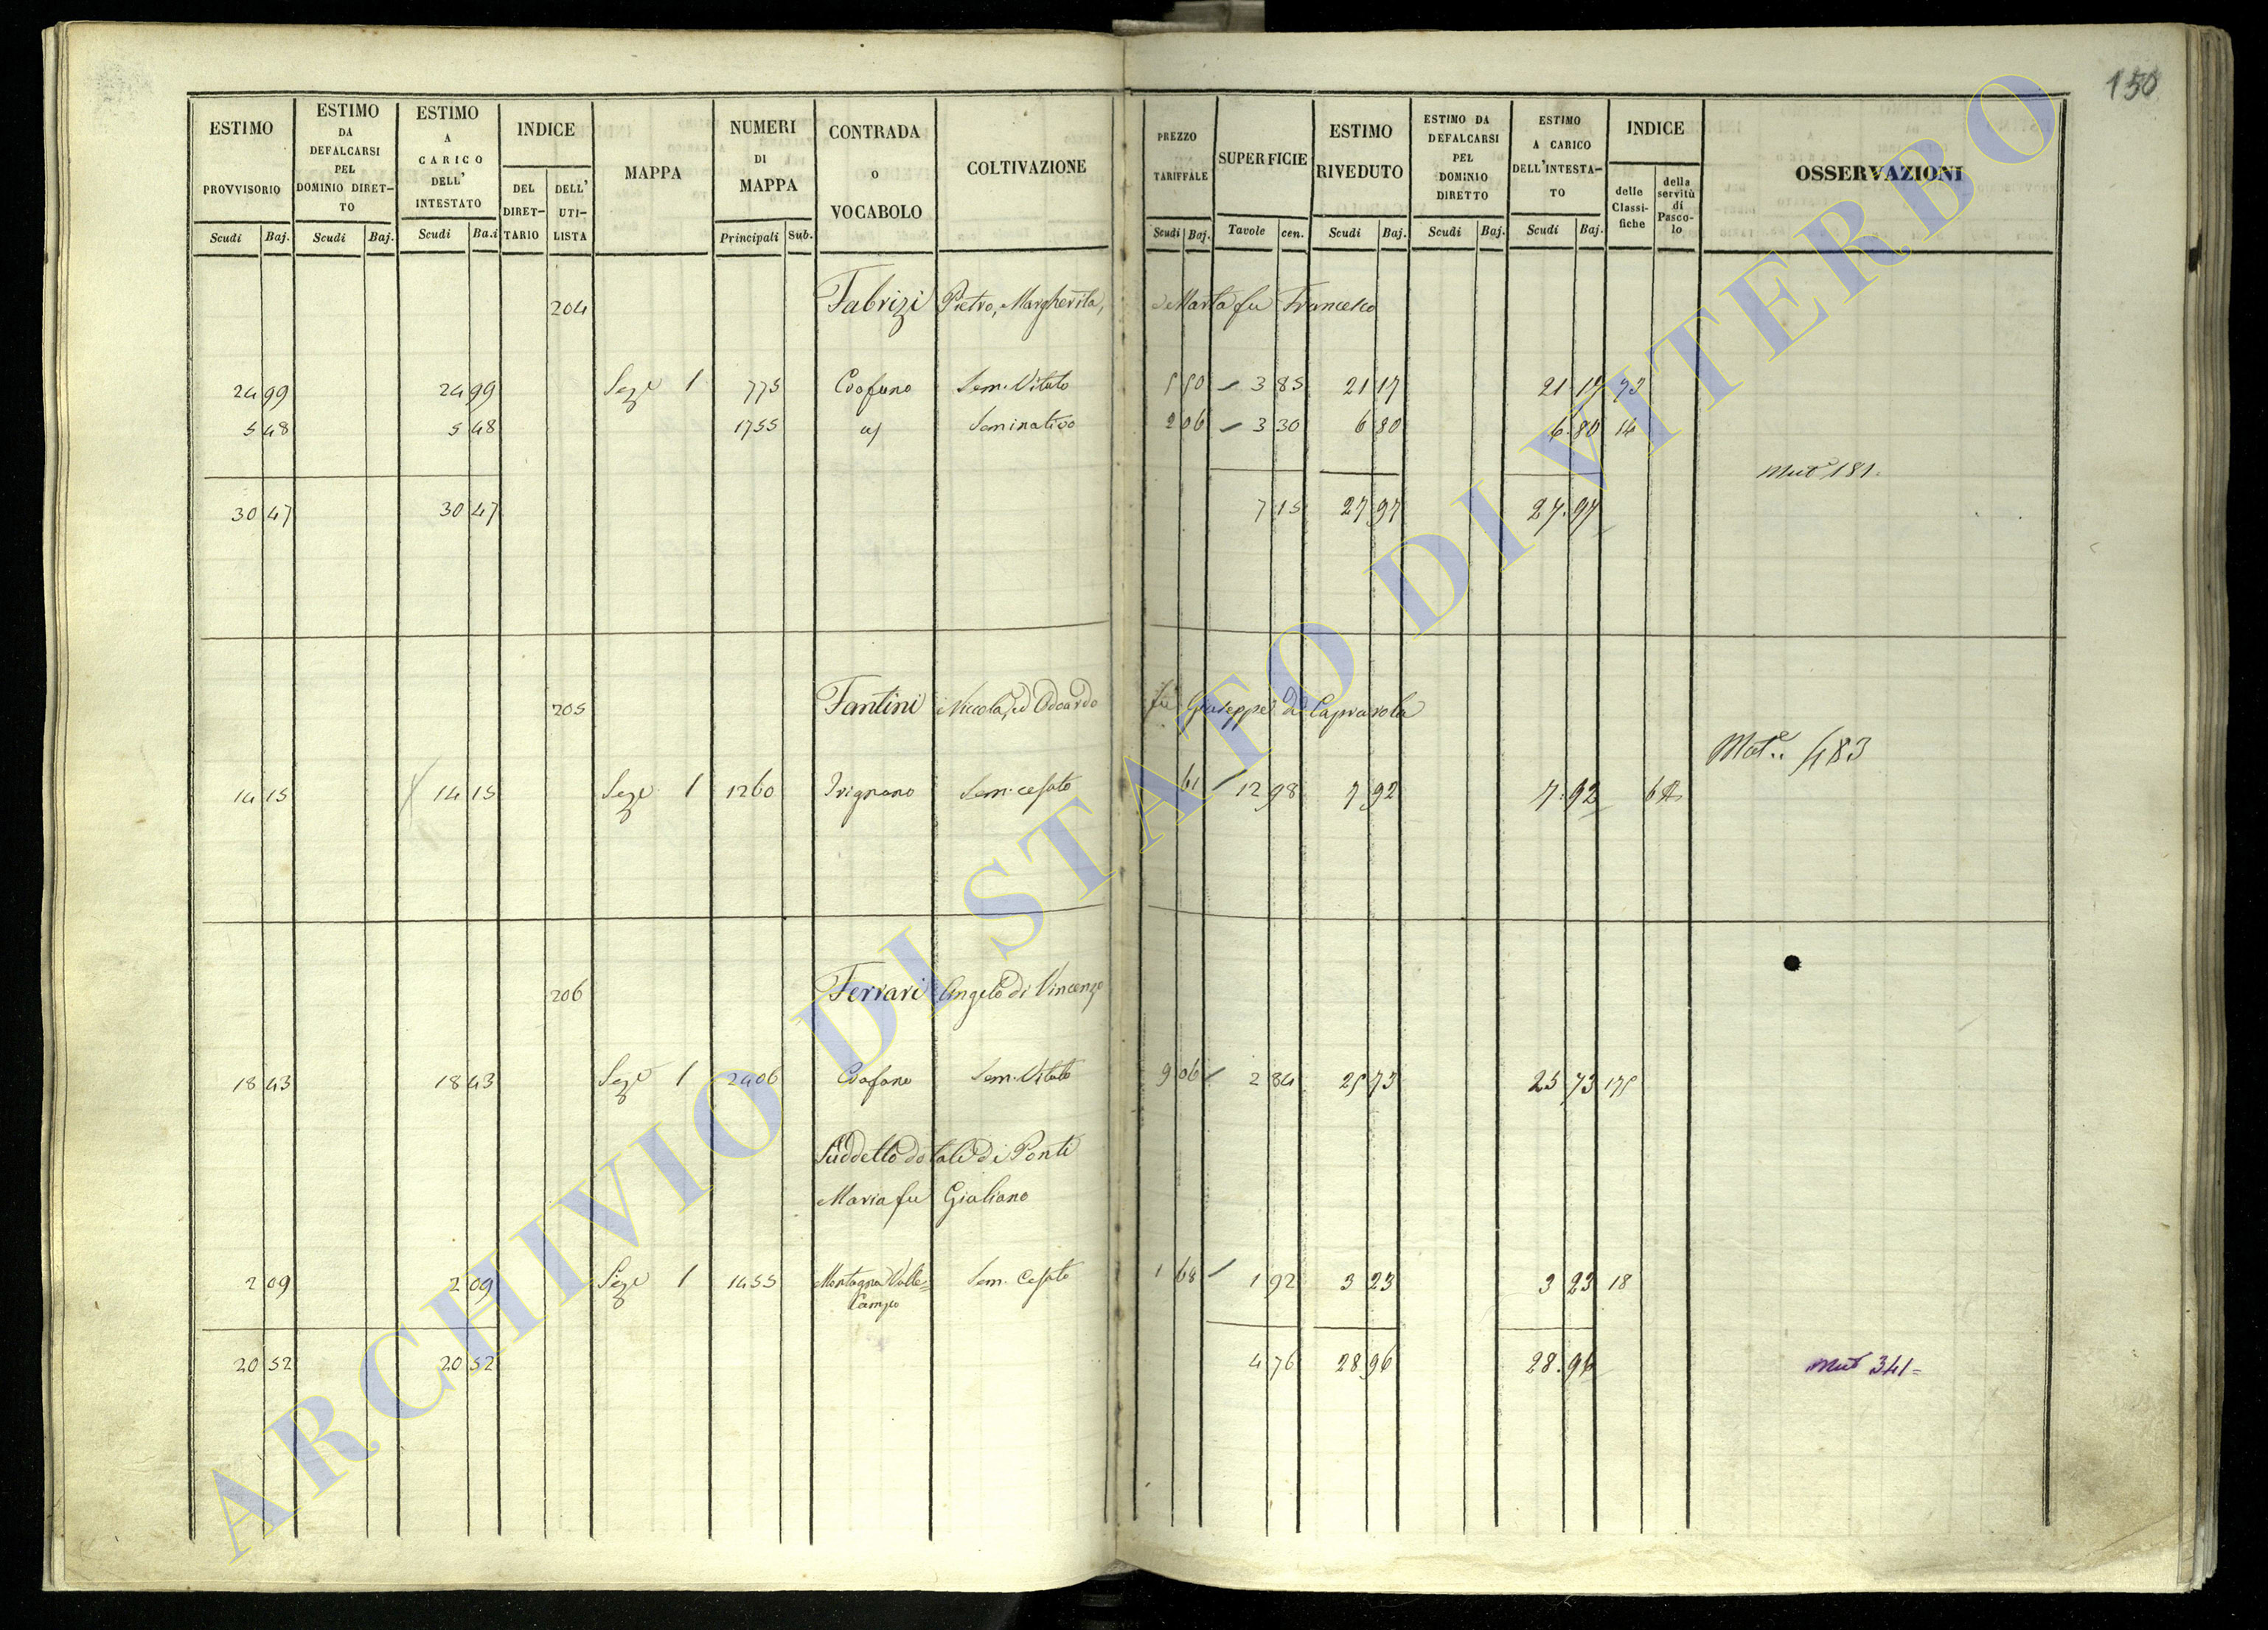 150
ESTIMO PROVVISORIO
ESTIMO DA DEFALCARSI PEL DOMINIO DIRET-TO
ESTIMO A CARICO DELL' INTESTATO
INDICE
DEL DIRET-TARIO
DELL' UTI-LISTA
MAPPA
NUMERI DI MAPPA
CONTRADA o VOCABOLO
COLTIVAZIONE
PREZZO TARIFFALE
SUPERFICIE
ESTIMO RIVEDUTO
ESTIMO DA DEFALCARSI PEL DOMINIO DIRETTO
ESTIMO A CARICO DELL'INTESTA-TO
INDICE
delle Classi-fiche
della servitù di Pasco-lo
OSSERVAZIONI
Scudi Baj. Scudi Baj. Scudi Ba.i Principali Sub. Scudi Baj. Tavole cen. Scudi Baj. Scudi Baj. Scudi Baj.
204 Fabrizi Pietro, Margherita, e Marta fu Francesco
24 99 24 99 Seze 1 775 Cosfano Sem. Vitato 5 50 3 85 21 17 21 17 73
5 48 5 48 1755 Seminativo 2 06 3 30 6 80 6 80 14
Mut 181.
30 47 30 47 7 15 27 97 27.97
205 Fantini Niccola, ed Odoardo fu Giuseppe di Caprarola
Mut. 483
14 15 14 15 Seze 1 1260 Irignano Sem. cesato 61 12 98 7 92 7.92
206 Ferrari Angelo di Vincenzo
18 43 18 43 Seze 1 2406 Cosfano Sem. Vitato 9 06 2 84 25 73 25 73 175
Suddetto dotale di Ponti
Maria fu Giuliano
2 09 2 09 Seze 1 1455 Montagna Valle= Sem. Cesato 1 68 1 92 3 23 3 23 18
Campo
20 52 20 52 4 76 28 96 28.96 Mut 341=
ARCHIVIO DI STATO DI VITERBO